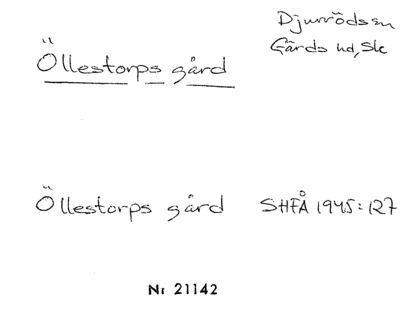 Djurröds sn
Gärds hd, Sk
Öllestorps gård
Öllestorps gård SHFÅ 1945:127
Nr 21142